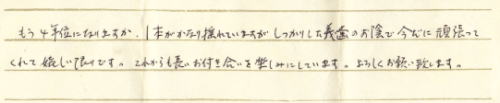 もう4年位になりますか、1本がかなり揺れていますがしっかりした義歯のお陰で今だに頑張って
くれて嬉しい限りです。これからも長いお付き合いを楽しみにしています。よろしくお願い致します。